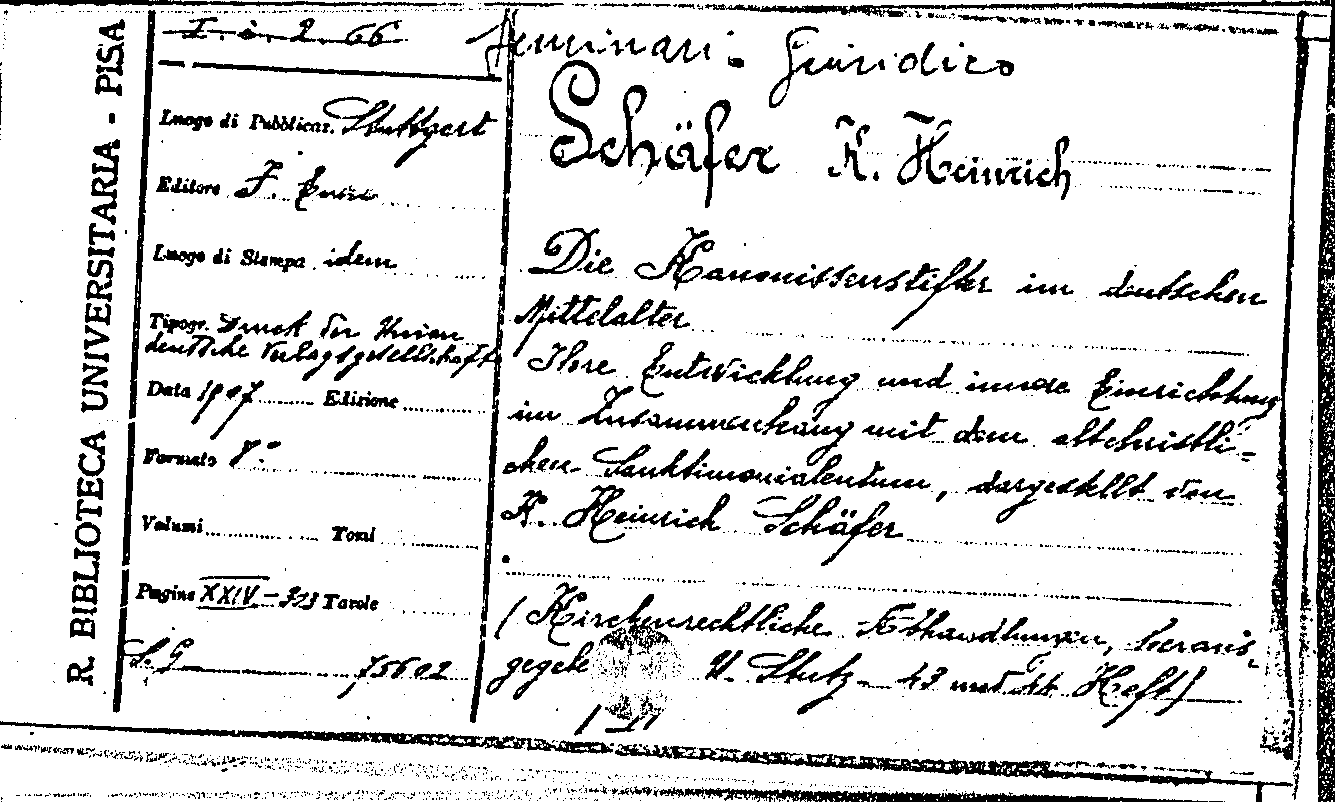 R. BIBLIOTECA UNIVERSITARIA - PISA
I. i. 2. 66
Luogo di Pubblicaz. Stuttgart
Editore F. Enke
Luogo di Stampa idem
Tipogr. Druck der Union
deutsche Verlagsgesellschaft
Data 1907 Edizione
Formato 8.°
Volumi Tomi
Pagine XXIV - 303 Tavole
S. G 75602
Seminari. Giuridico
Schäfer K. Heinrich
Die Kanonissenstifter im deutschen
Mittelalter
Ihre Entwicklung und innere Einrichtung
im Zusammenhang mit dem altchristli=
chen Sanktimonialentum, dargestellt von
K. Heinrich Schäfer
(Kirchenrechtliche Abhandlungen, heraus,
gegebe U. Stutz - 43 und 44 Heft)